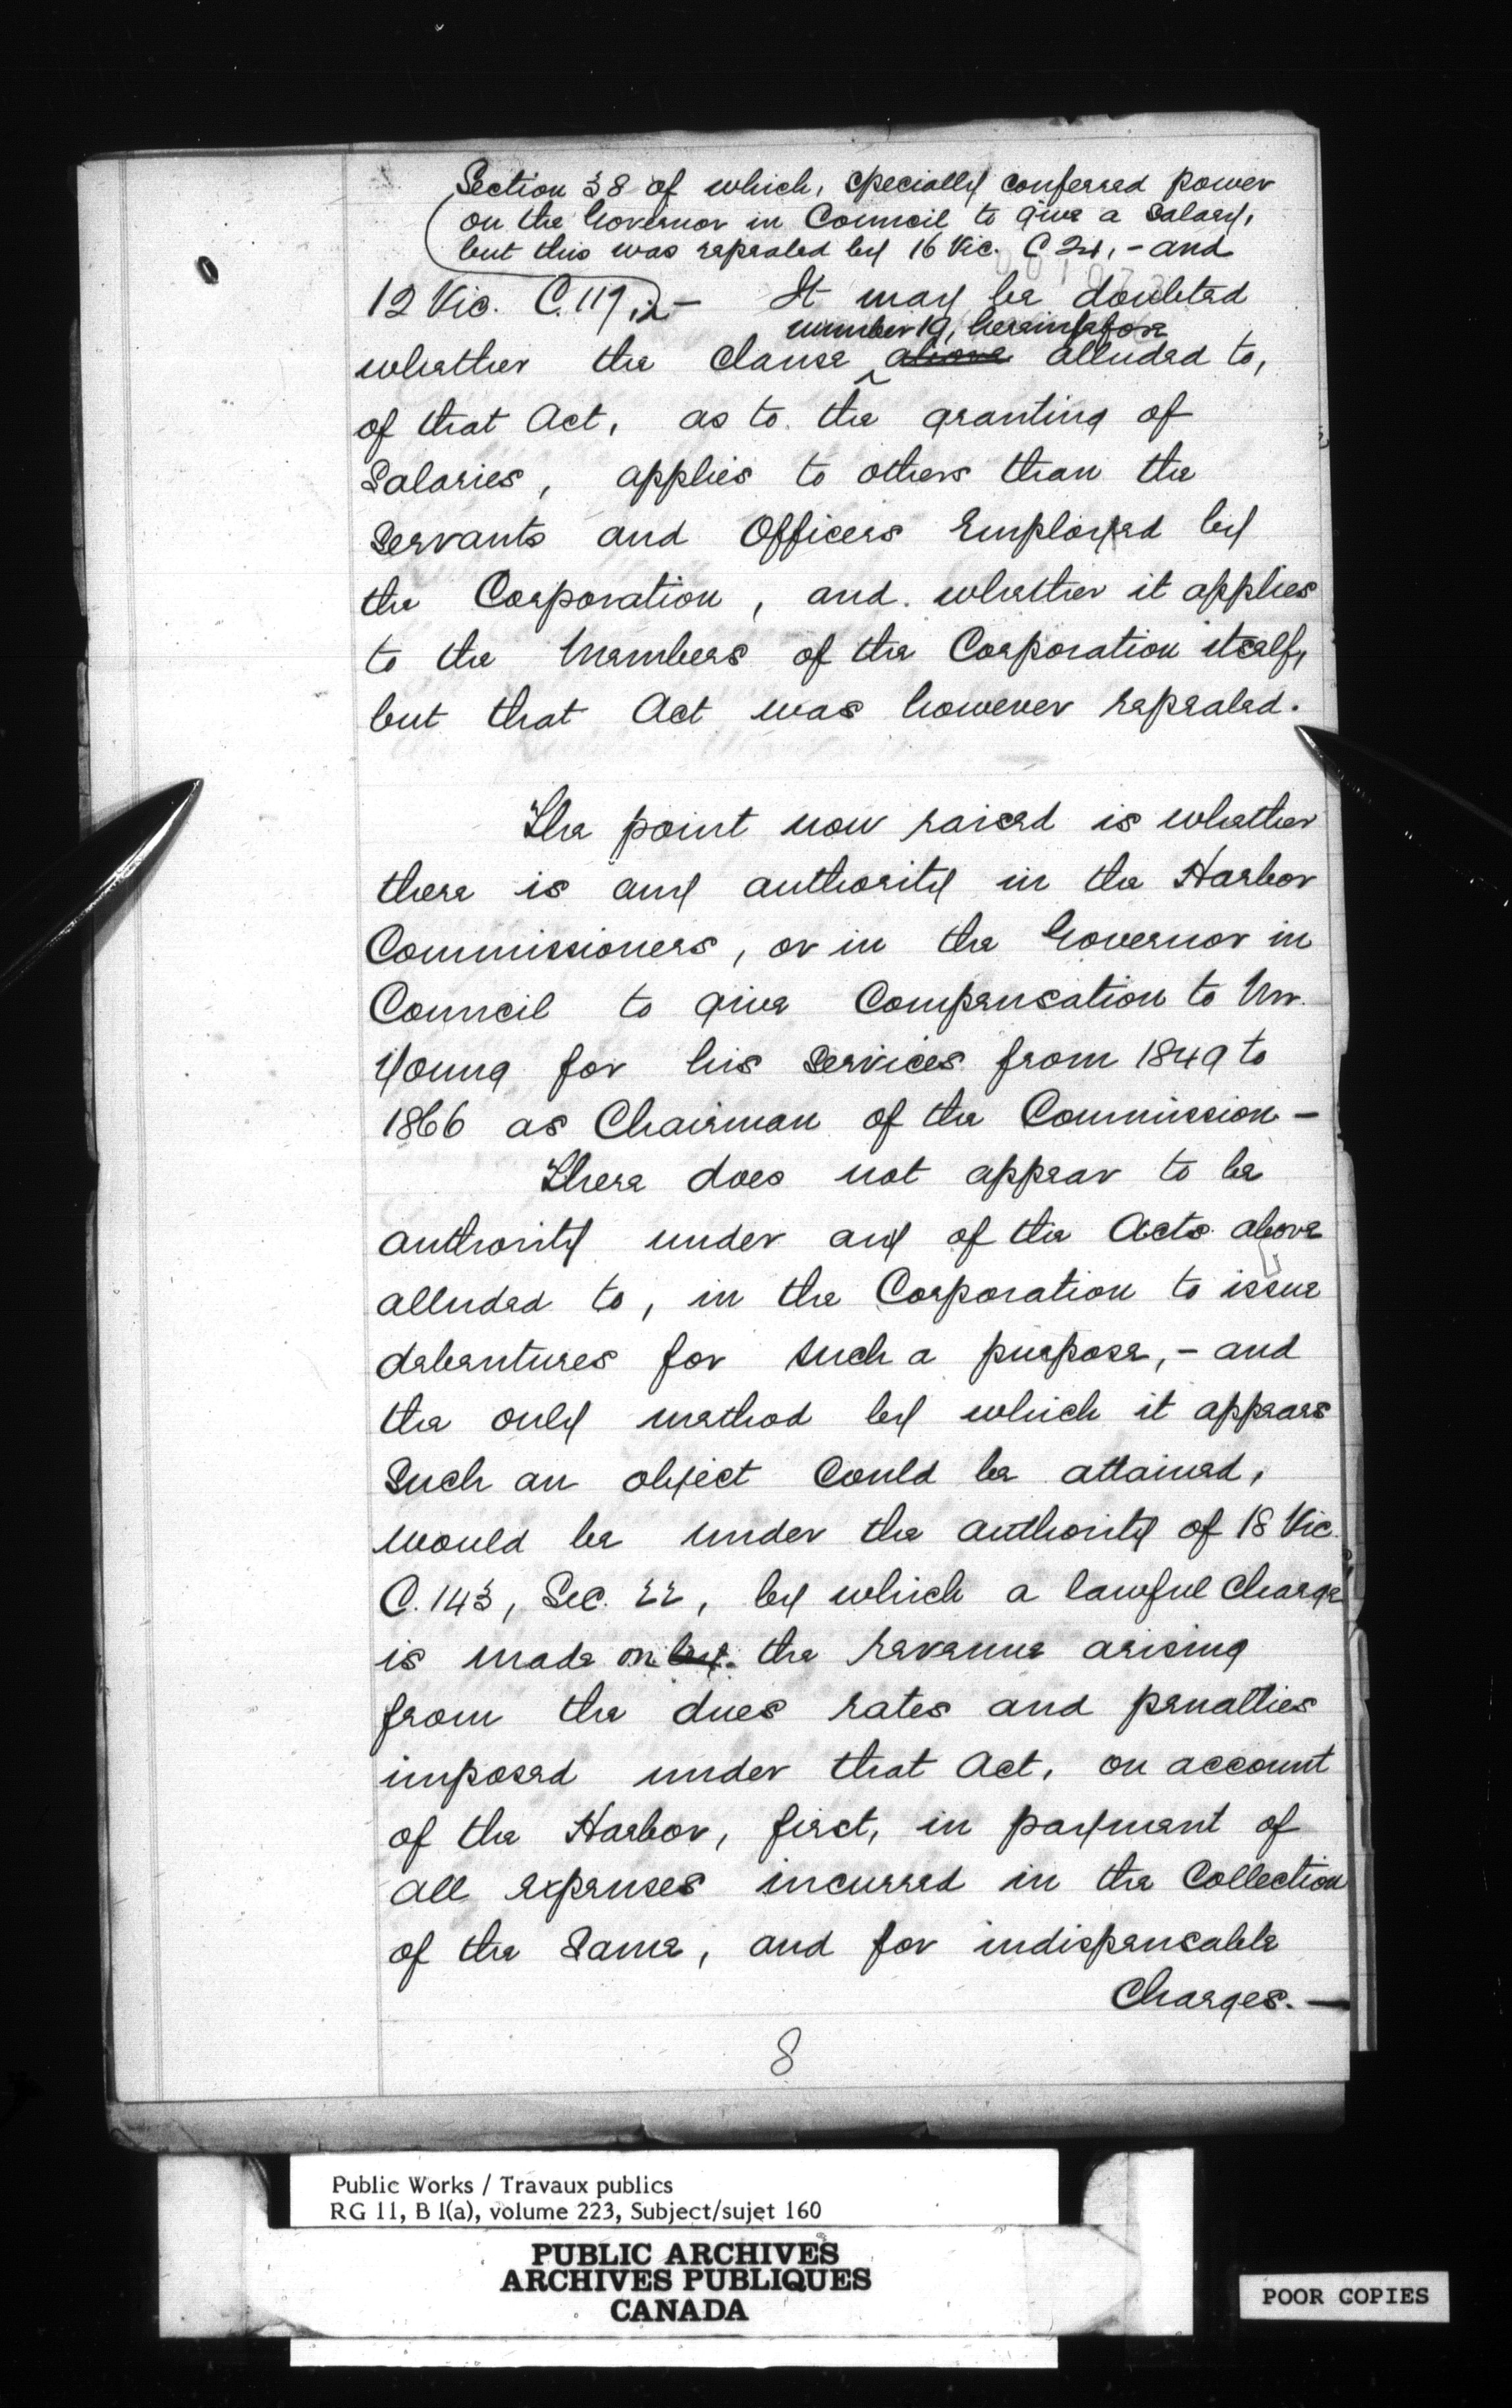 Section 38 of which, specially conferred power
on the Governor in Council to give a Salary,
but this was repealed by 16 Vic. C 24, - and
12 Vic. C. 117, - It may be doubted
number 19, hereinbefore
whether the Clause above alluded to,
of that Act, as to the granting of
Salaries, applies to others than the
Servants and Officers Employed by
the Corporation, and whether it applies
to the Members of the Corporation itself,
but that Act was however repealed.
The point now raised is whether
there is any authority in the Harbor
Commissioners, or in the Governor in
Council to give Compensation to Mr.
Young for his Services from 1849 to
1866 as Chairman of the Commission -
There does not appear to be
authority under any of the Acts above
alluded to, in the Corporation to issue
debentures for such a purpose, - and
the only method by which it appears
Such an object Could be attained,
would be under the authority of 18 Vic.
C. 143, Sec. 22, by which a lawful Charge
is made on by the revenue arising
from the dues rates and penalties
imposed under that Act, on account
of the Harbor, first, in payment of
all expenses incurred in the Collection
of the Same, and for indispensable
Charges. -
8
Public Works / Travaux publics
RG 11, B 1(a), volume 223, Subject/sujet 160
PUBLIC ARCHIVES
ARCHIVES PUBLIQUES
CANADA
POOR COPIES